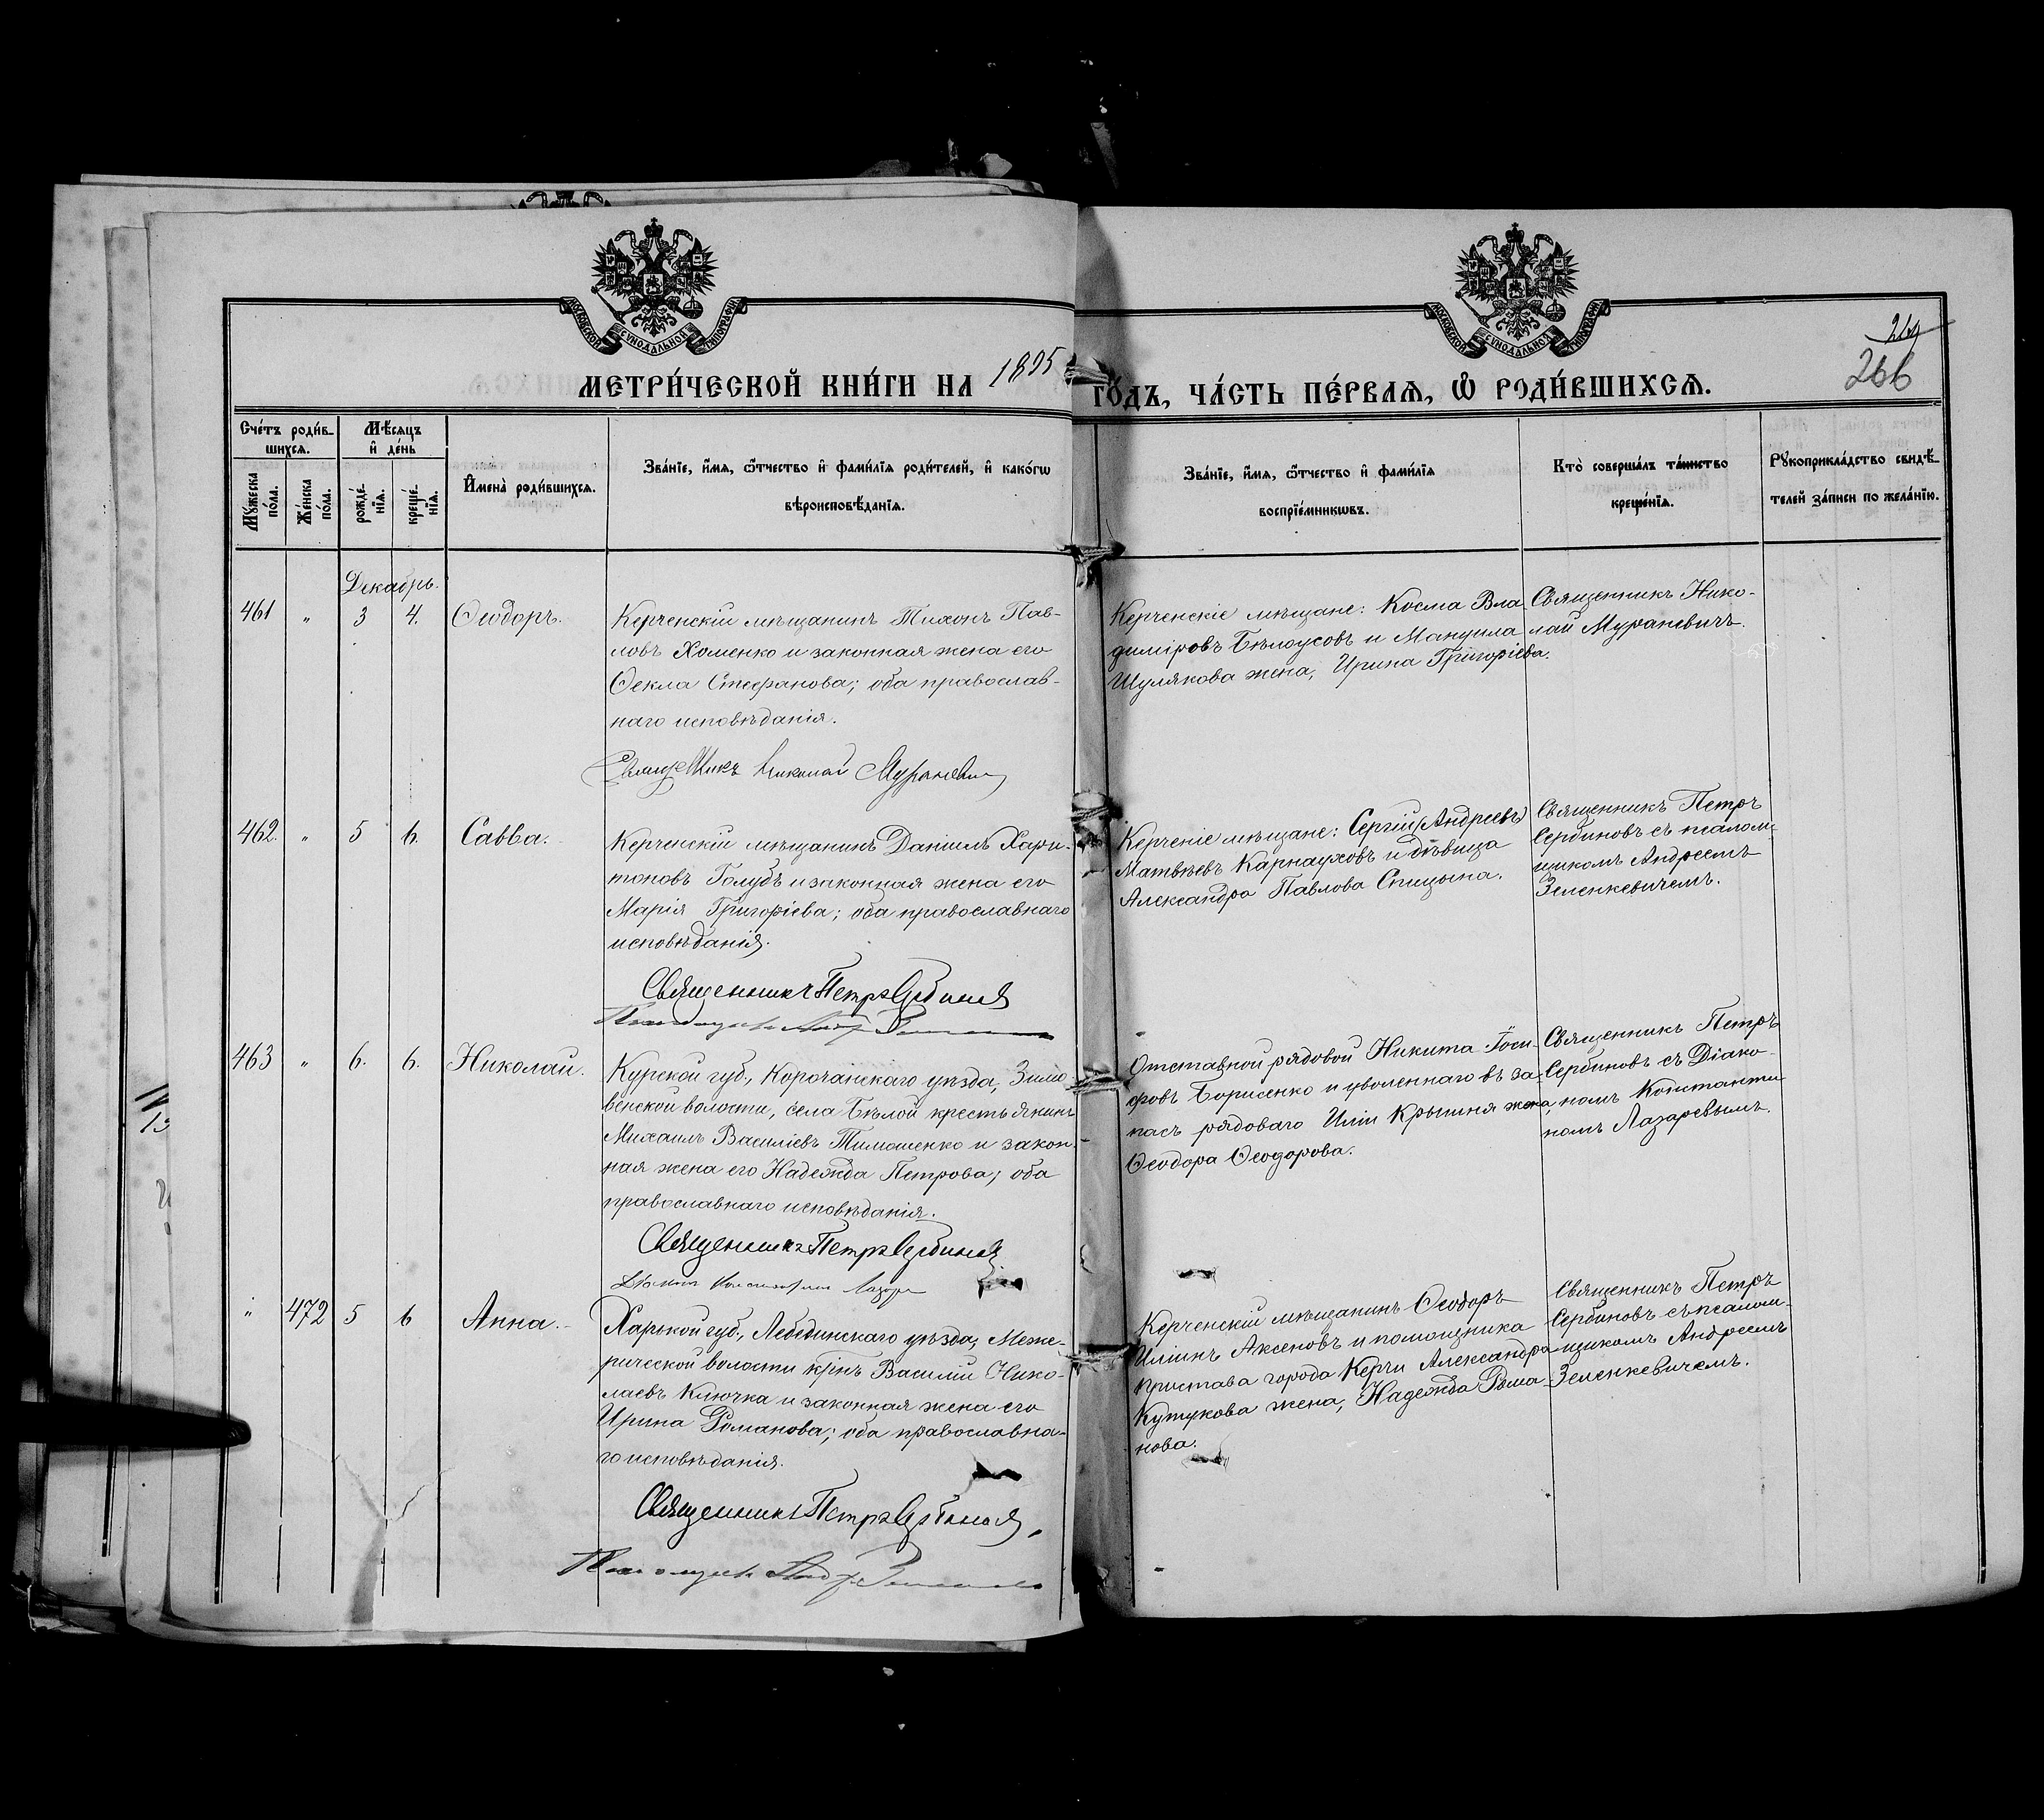 МОСКОВСКОЙ СѴНОДАЛЬНОЙ ТИПОГРАФІИ
МОСКОВСКОЙ СѴНОДАЛЬНОЙ ТИПОГРАФІИ
266
МЕТРИ́ЧЕСКОЙ КНИ́ГИ НА 1895 ГО́ДЪ, ЧА́СТЬ ПЕ́РВАѦ, Ѡ҆ РОДИ́ВШИХСѦ.
Сче́тъ роди́в-
шихсѧ.
Мꙋ́жеска
по́ла.
Же́нска
по́ла.
Мѣ́сѧцъ
и҆ де́нь
рожде́-
нїѧ.
креще́-
нїѧ.
И҆мена̀ роди́вшихсѧ.
Зва́нїе, и҆́мѧ, ѻ҆́тчество и҆ фами́лїѧ роди́телей, и҆ како́гѡ
вѣроисповѣ́данїѧ.
Зва́нїе, и҆́мѧ, ѻ҆́тчество и҆ фами́лїѧ
воспрїе́мникѡвъ.
Кто̀ соверша́лъ та́инство
креще́нїѧ.
Рꙋкоприкла́дство свидѣ́-
телей за́писи по жела́нїю.
Декабрь.
461 " 3 4. Ѳеодоръ.
Керченскій мѣщанинъ Тихонъ Пав-
ловъ Хоменко и законная жена его
Ѳекла Стефанова; оба православ-
наго исповѣданія.
Священникъ Николай Мураневичъ
Керченскіе мѣщане: Косма Вла-
диміровъ Бѣлоусовъ и Мануила
Шулякова жена, Ирина Григоріева.
Священникъ Нико-
лай Мураневичъ.
462. " 5 6. Савва.
Керченскій мѣщанинъ Даніилъ Хари-
тоновъ Голубъ и законная жена его
Марія Григоріева; оба православнаго
исповѣданія.
Священникъ Петръ Сербиновъ
Керченіе мѣщане: Сергій (Андреевъ)
Матвѣевъ Карнауховъ и дѣвица
Александра Павлова Спицына.
Священникъ Петръ
Сербиновъ съ псалом-
щикомъ Андреемъ
Зеленкевичемъ.
463 " 6. 6. Николай.
Курской губ., Корочанскаго уѣзда, Зимо-
венской волости, села Бѣлой крестьянинъ
Михаилъ Василіевъ Тимошенко и закон-
ная жена его Надежда Петрова; оба
православнаго исповѣданія.
Священникъ Петръ Сербиновъ
Діаконъ Константинъ Лазаревъ
Отставной рядовой Никита Іоси-
фовъ Борисенко и уволеннаго въ за-
пасъ рядоваго Иліи Крыпиня жена,
Ѳеодора Ѳеодорова.
Священникъ Петръ
Сербиновъ съ Діако-
номъ Константи-
номъ Лазаревымъ.
" 472 5 6 Анна.
Харькой губ., Лебединскаго уѣзда, Меже-
рической волости крѣнъ Василій Нико-
лаевъ Ключка и законная жена его
Ирина Романова; оба православна-
го исповѣданія.
Священникъ Петръ Сербиновъ
Керченскій мѣщанинъ Ѳеодоръ
Иліинъ Аксеновъ и помощника
пристава города Керчи Александра
Кутукова жена, Надежда Рома-
нова.
Священникъ Петръ
Сербиновъ съ псалом-
щикомъ Андреемъ
Зеленкевичемъ.